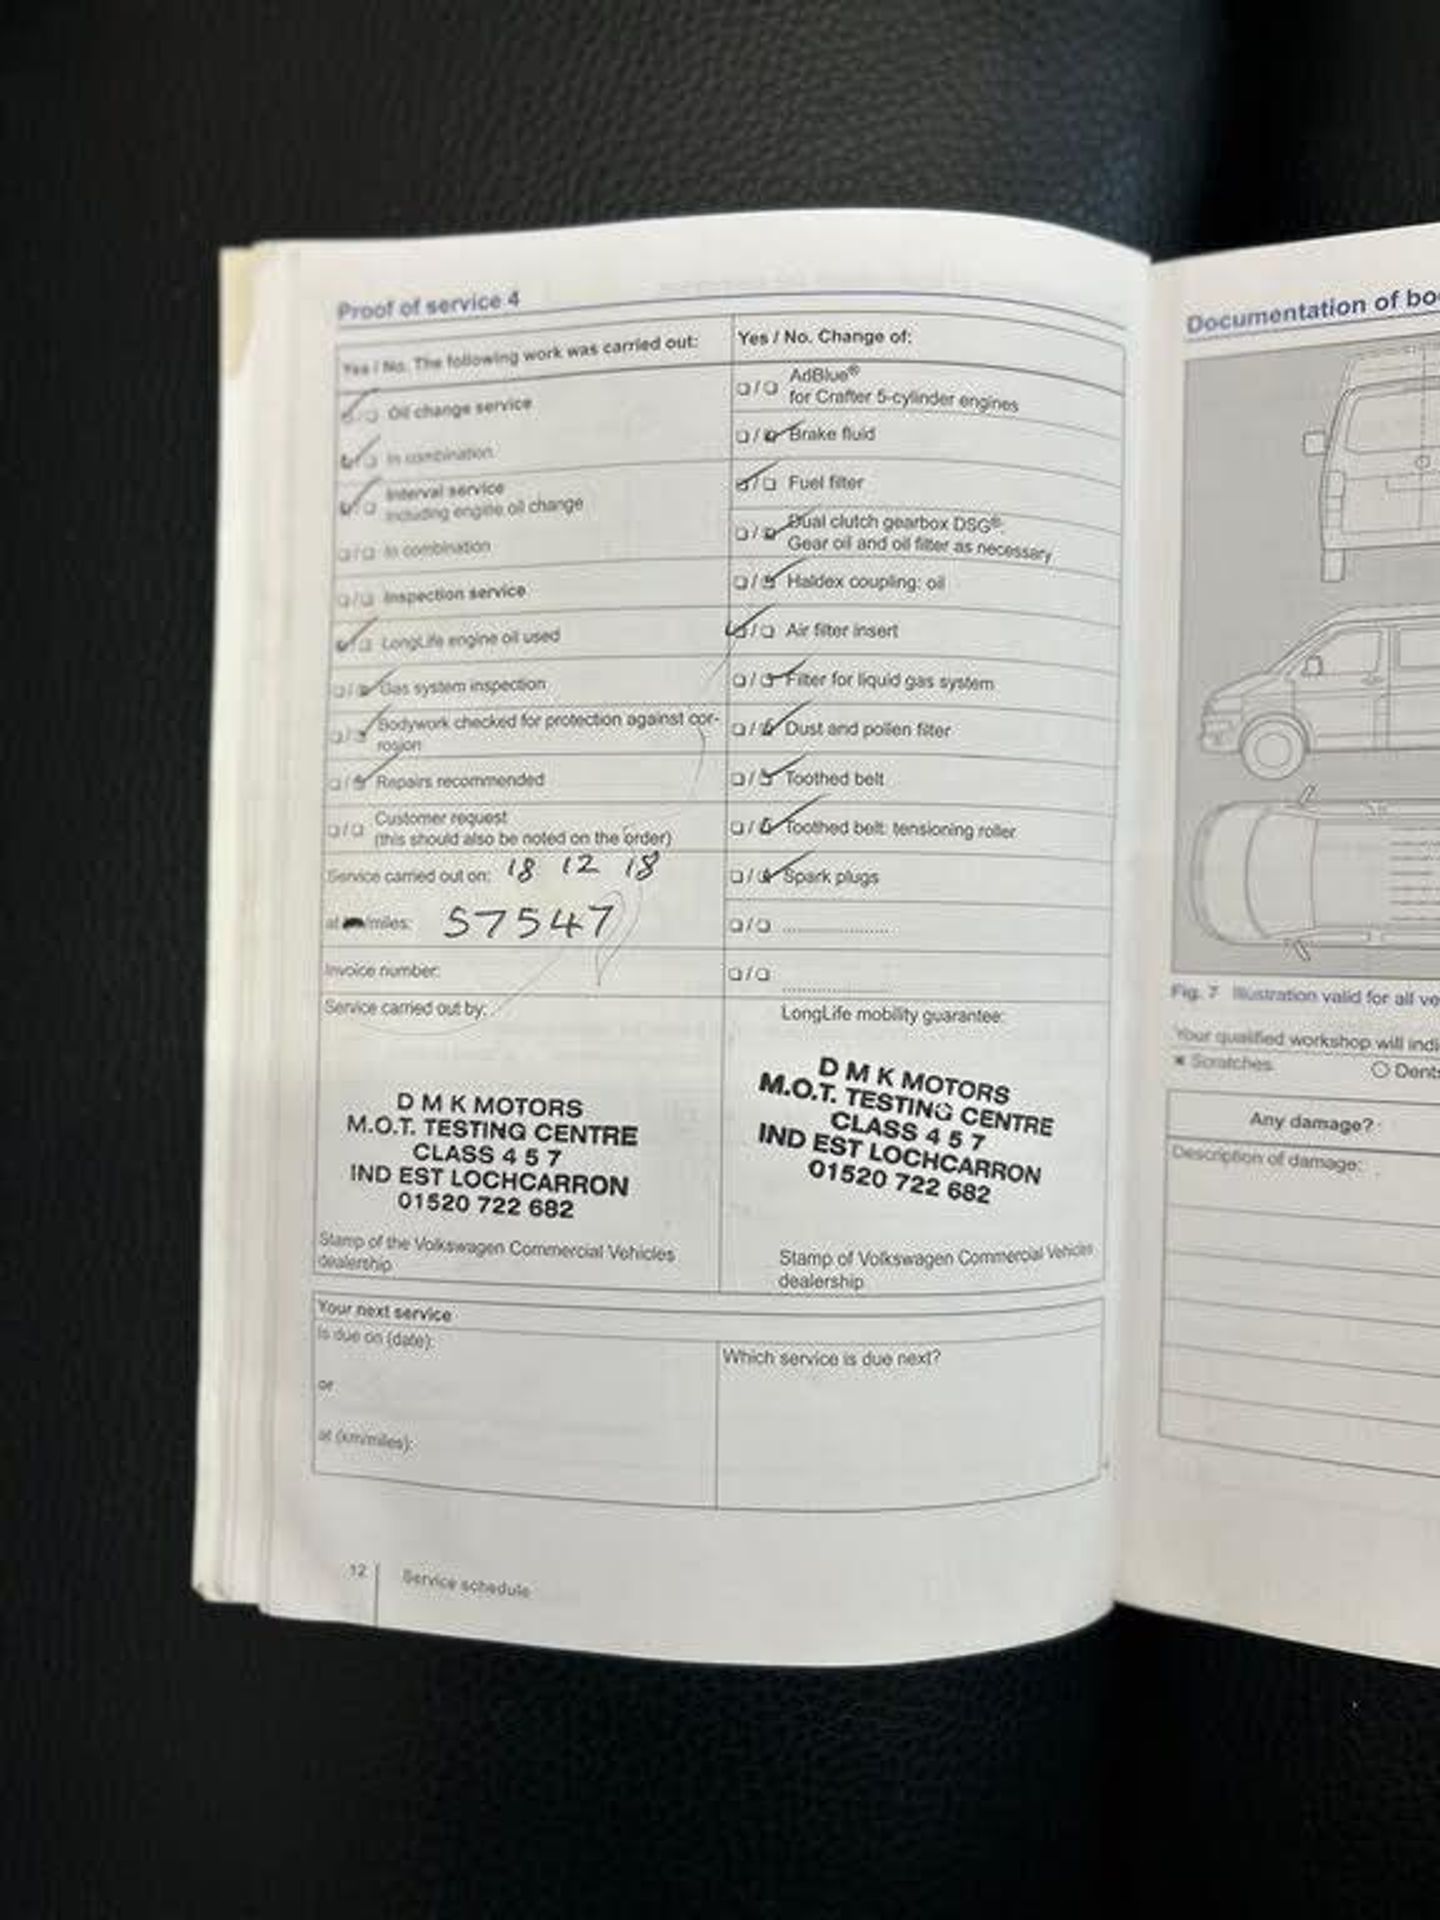 Proof of service 4
Yes / No. The following work was carried out:
Oil change service
In combination
Interval service
including engine oil change
In combination
Inspection service
LongLife engine oil used
Gas system inspection
Bodywork checked for protection against cor-
rosion
Repairs recommended
Customer request
(this should also be noted on the order)
Service carried out on: 18 12 18
at /miles: 57547
Invoice number:
Service carried out by:
D M K MOTORS
M.O.T. TESTING CENTRE
CLASS 4 5 7
IND EST LOCHCARRON
01520 722 682
Stamp of the Volkswagen Commercial Vehicles
dealership
Yes / No. Change of:
AdBlue®
for Crafter 5-cylinder engines
Brake fluid
Fuel filter
Dual clutch gearbox DSG®:
Gear oil and oil filter as necessary
Haldex coupling: oil
Air filter insert
Filter for liquid gas system
Dust and pollen filter
Toothed belt
Toothed belt: tensioning roller
Spark plugs
LongLife mobility guarantee:
D M K MOTORS
M.O.T. TESTING CENTRE
CLASS 4 5 7
IND EST LOCHCARRON
01520 722 682
Stamp of Volkswagen Commercial Vehicles
dealership
Your next service
Is due on (date):
or
at (km/miles):
Which service is due next?
12 Service schedule
Documentation of bo
Fig. 7 Illustration valid for all ve
Your qualified workshop will indi
Scratches Dents
Any damage?
Description of damage: